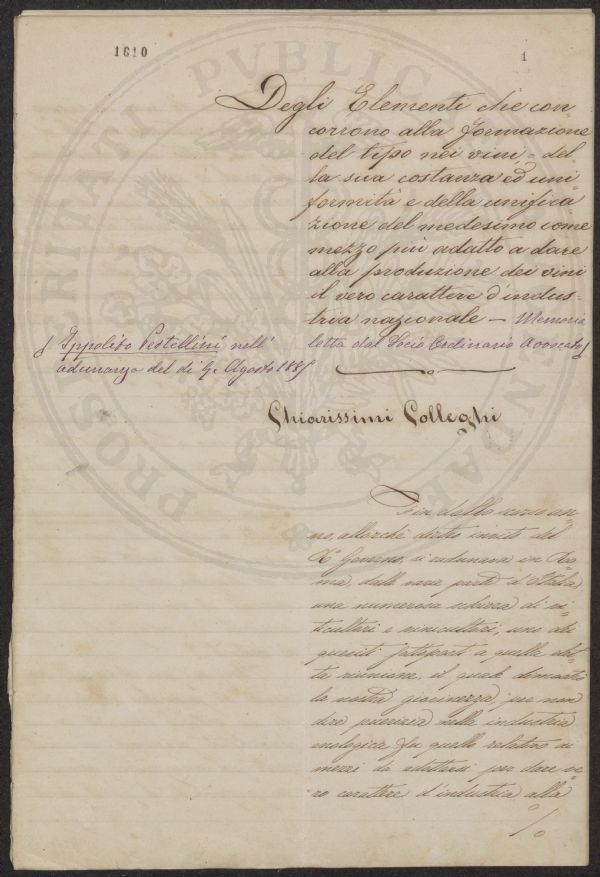 1610
1
Degli Elementi che con
corrono alla formazione
del tipo nei vini = del
la sua costanza ed uni
formità e della unifica
zione del medesimo come
mezzo più adatto a dare
alla produzione dei vini
il vero carattere d'indus=
tria nazionale — Memoria
letta dal Socio Ordinario Avvocato
Ippolito Pestellini nell'
adunanza del dì 9. Agosto 188
Chiarissimi Colleghi
Fin dallo scorso an=
no, allorchè dietro invito del
R° Governo, si adunava in Ro=
ma, dalle varie parti d'Italia,
una numerosa schiera di vi=
ticultori e vinicultori, uno dei
quesiti fatti a quella
riunione, il quale dimostra
la nostra giovinezza, per non
dire puerizia nella industria
enologica, fu quello relativo ai
mezzi da adottarsi per dare ve
ro carattere d'industria alla
%
PROSPERITATI PUBLICAE AUGENDAE